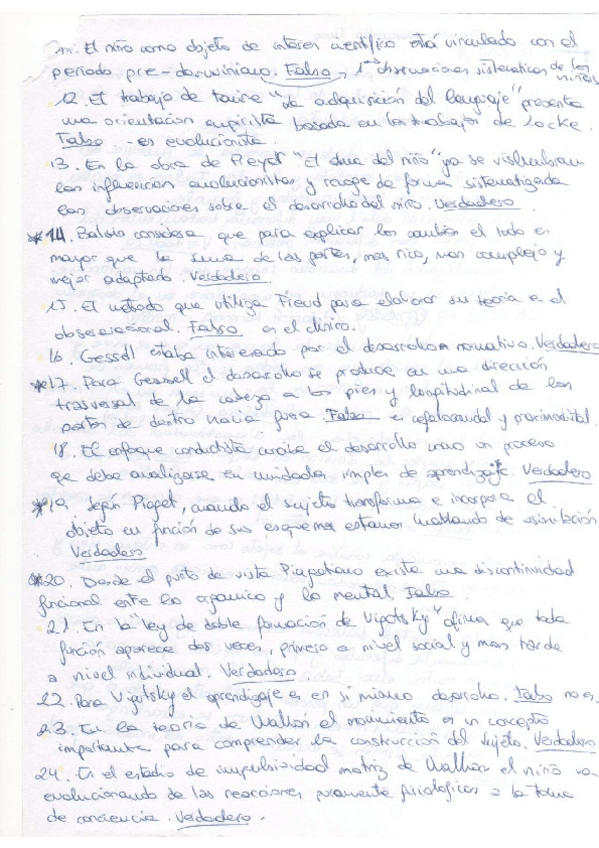 11. El niño como objeto de interés científico está vinculado con el
periodo pre-darwiniano. Falso, 1ªs observaciones sistematicas de los niños
12. El trabajo de Taine "la adquisición del lenguaje" presenta
una orientación empirista basada en los trabajos de Locke.
Falso - es evolucionista.
13. En la obra de Preyer "El alma del niño" ya se vislumbran
las influencias evolucionistas y recoge de forma sistematizada
las observaciones sobre el desarrollo del niño. Verdadero
*14. Baldwin considera, que para explicar los cambios el todo es
mayor que la suma de las partes, mas rico, mas complejo y
mejor adaptado. Verdadero.
15. El método que utiliza Freud para elaborar su teoria es el
observacional. Falso es el clínico.
16. Gessell estaba interesado por el desarrollo normativo. Verdadero
*17. Para Gessell el desarrollo se produce en una dirección
trasversal de la cabeza a los pies y longitudinal de las
partes de dentro hacia fuera. Falso es cefalocaudal y proximodistal.
18. El enfoque conductista concibe el desarrollo como un proceso
que debe analizarse en unidades simples de aprendizaje. Verdadero
*19. Según Piaget, cuando el sujeto transforma e incorpora el
objeto en función de sus esquemas estamos hablando de asimilación
Verdadero
*20. Desde el punto de vista Piagetiano existe una discontinuidad
funcional entre lo organico y lo mental. Falso.
21. En la "ley de doble formación de Vigotsky" afirma que toda
función aparece dos veces, primero a nivel social y mas tarde
a nivel individual. Verdadero.
22. Para Vigotsky el aprendizaje es en si mismo desarrollo. Falso no es.
23. En la teoria de Wallon el movimiento es un concepto
importante para comprender la construcción del sujeto. Verdadero
24. En el estadio de impulsividad motriz de Wallon el niño va
evolucionando de las reacciones puramente fisiologicas a la toma
de conciencia. Verdadero.